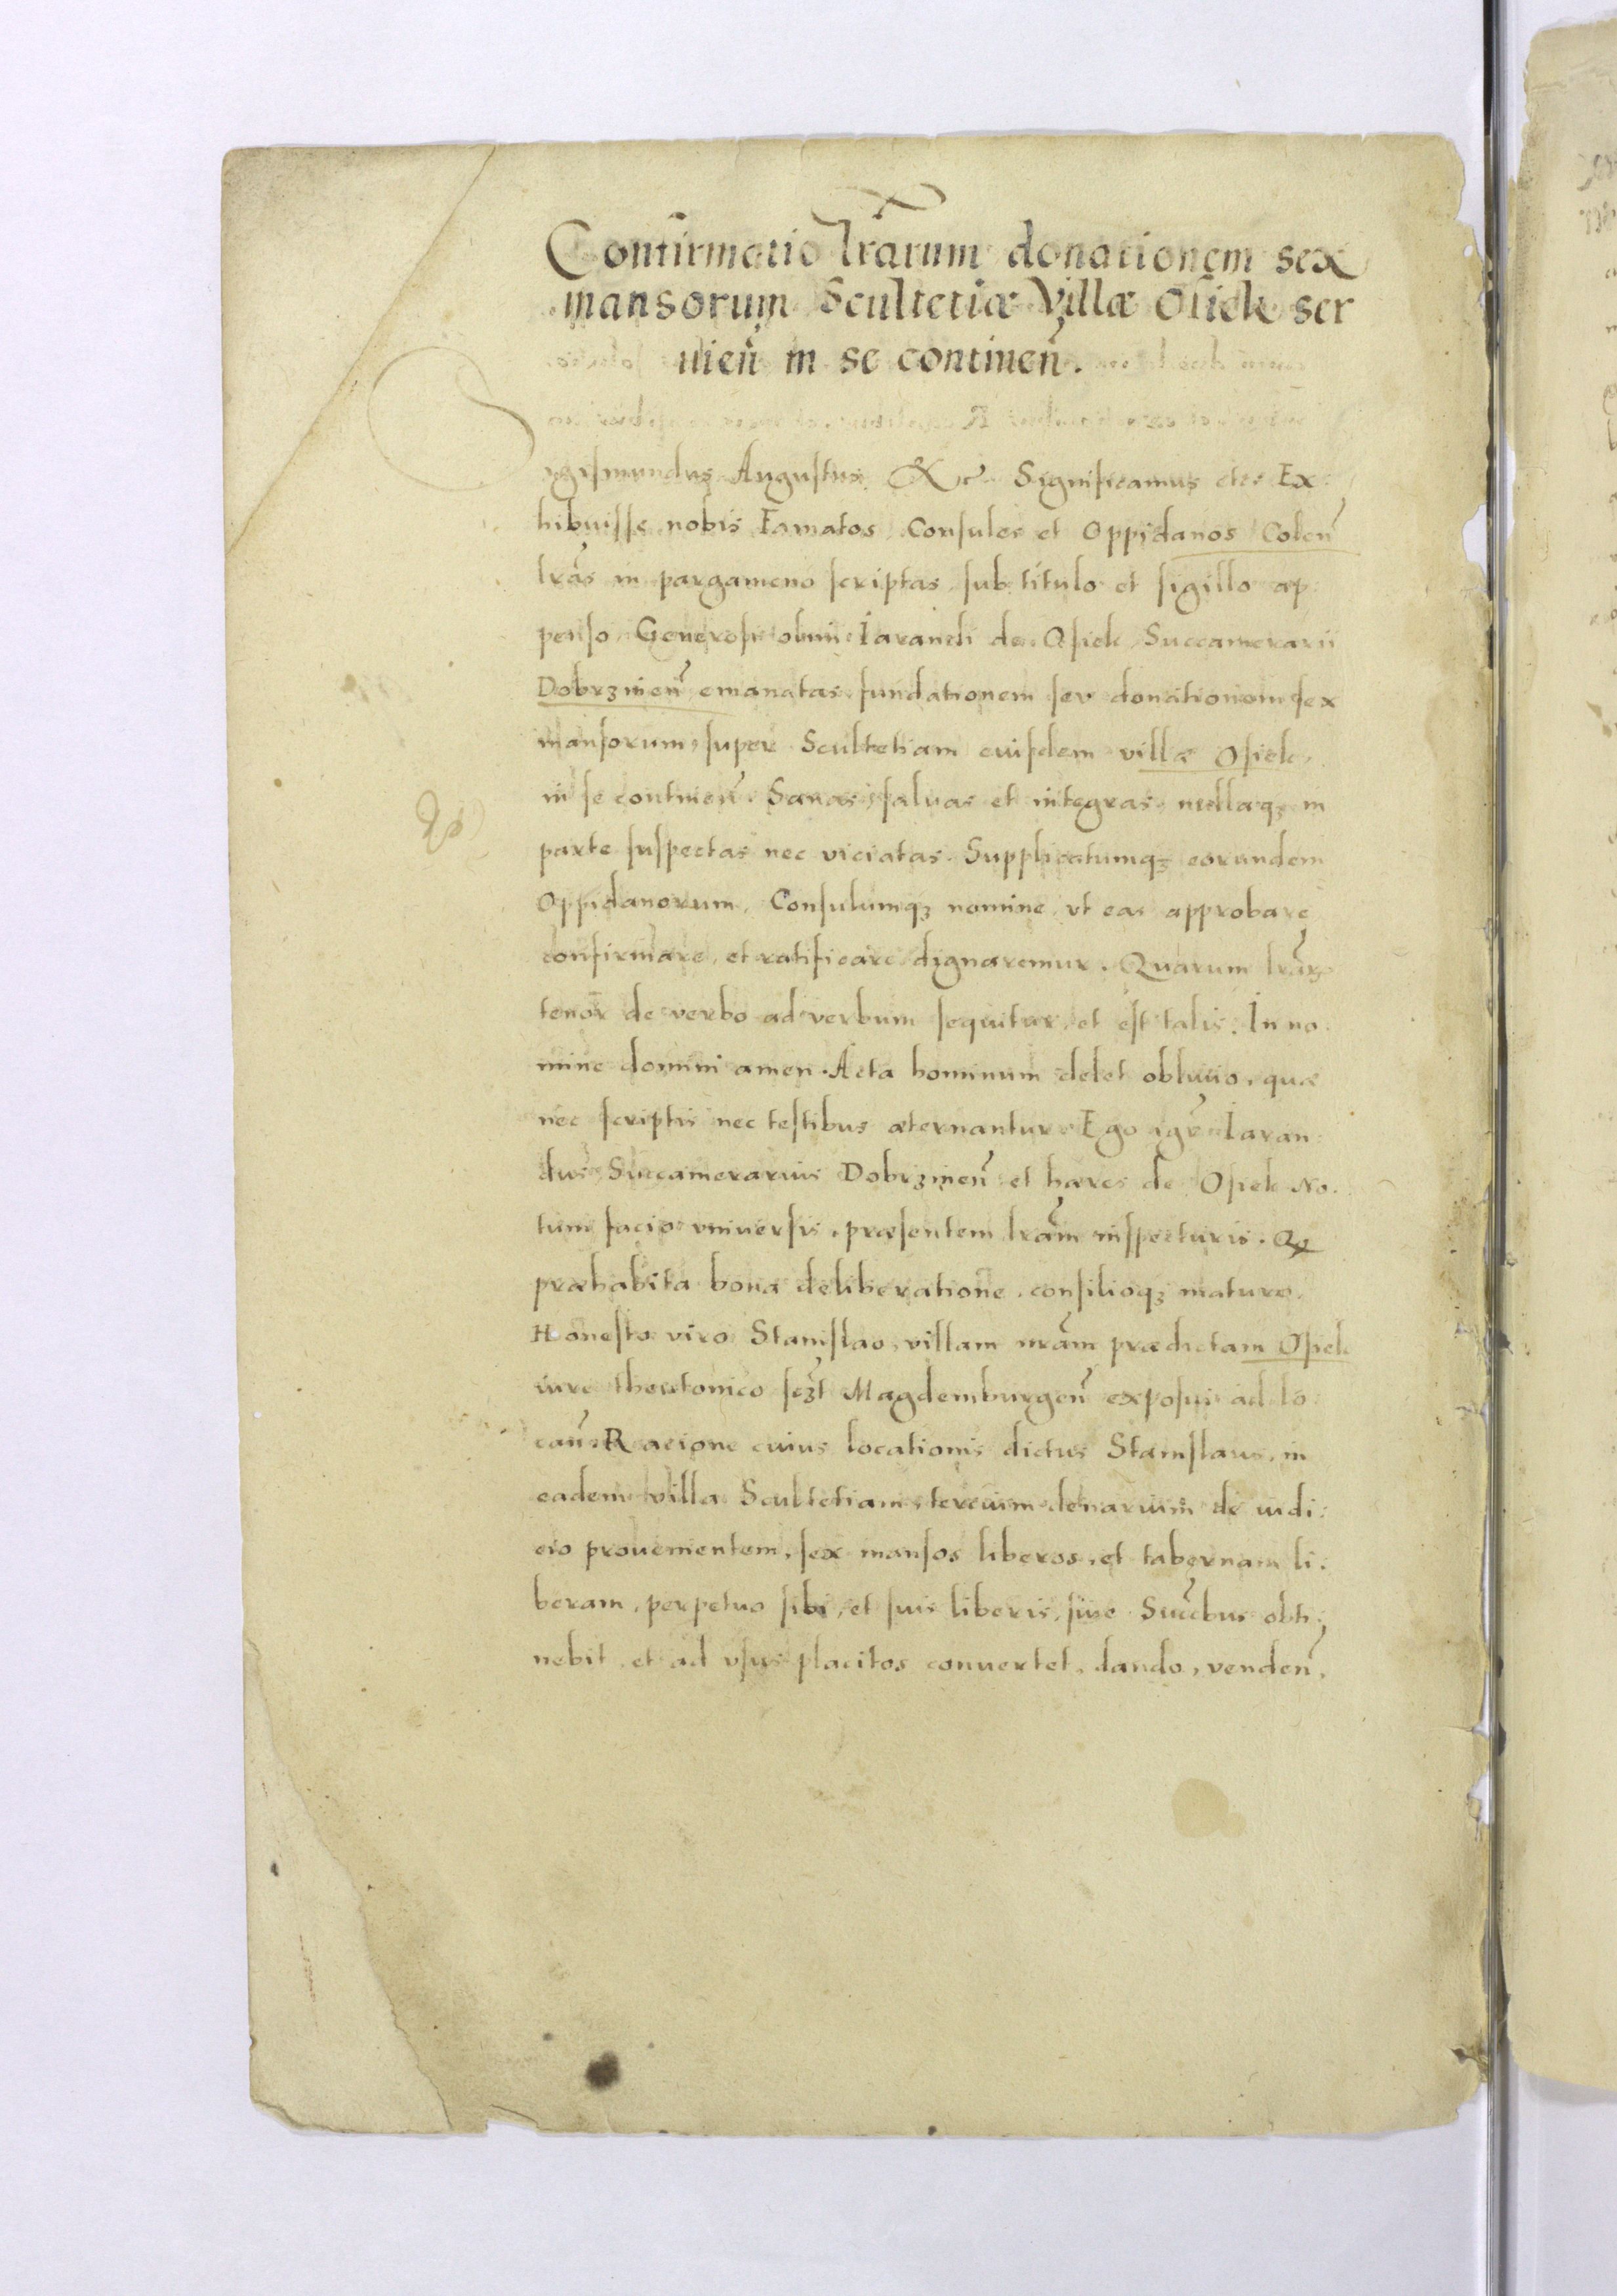 Confirmatio lrãrum donationem sex
mansorum Scultetiæ Villæ Osiek ser
uieñ in se contineñ.
Sigismundus Augustus &c Significamus etc Ex
hibuisse nobis Famatos Consules et Oppidanos Coleñ
lrãs in pargameno scriptas sub titulo et sigillo ap
penso Generosi olim Iarandi de Osiek Succamerarii
Dobrzineñ emanatas fundationem seu donationem sex
mansorum, super Scultetiam euisdem villæ Osiek,
in se contineñ. Sanas, saluas et integras, nullaqȝ in
parte suspectas nec viciatas. Supplicatumqȝ eorundem
Oppidanorum, Consulumqȝ nomine, vt eas approbare
confirmare, et ratificare dignaremur. Quarum lrãrȝ
tenor de verbo ad verbum sequitur, et est talis. In no
mine domini amen. Acta hominum delet obliuio, quæ
nec scriptis nec testibus æternantur. Ego igr̃ Iaran
dus Succamerarius Dobrzineñ et hæres de Osiek No
tum facio vniuersis, præsentem lrãm inspecturis. Qȝ
præhabita bona deliberatione, consilioqȝ maturo,
Honesto viro Stanislao, villam nrãm prædictam Osiek
iure theutonico sczt Magdemburgeñ exposui ad lo
cañ. Racione cuius locationis dictus Stanislaus, in
eadem villa Scultetiam, tercium denarium de iudi:
cio prouenientem, sex mansos liberos, et tabernam li:
beram, perpetuo sibi, et suis liberis, siue Succ̃bus obti:
nebit, et ad vsus placitos conuertet, dando, vendeñ,